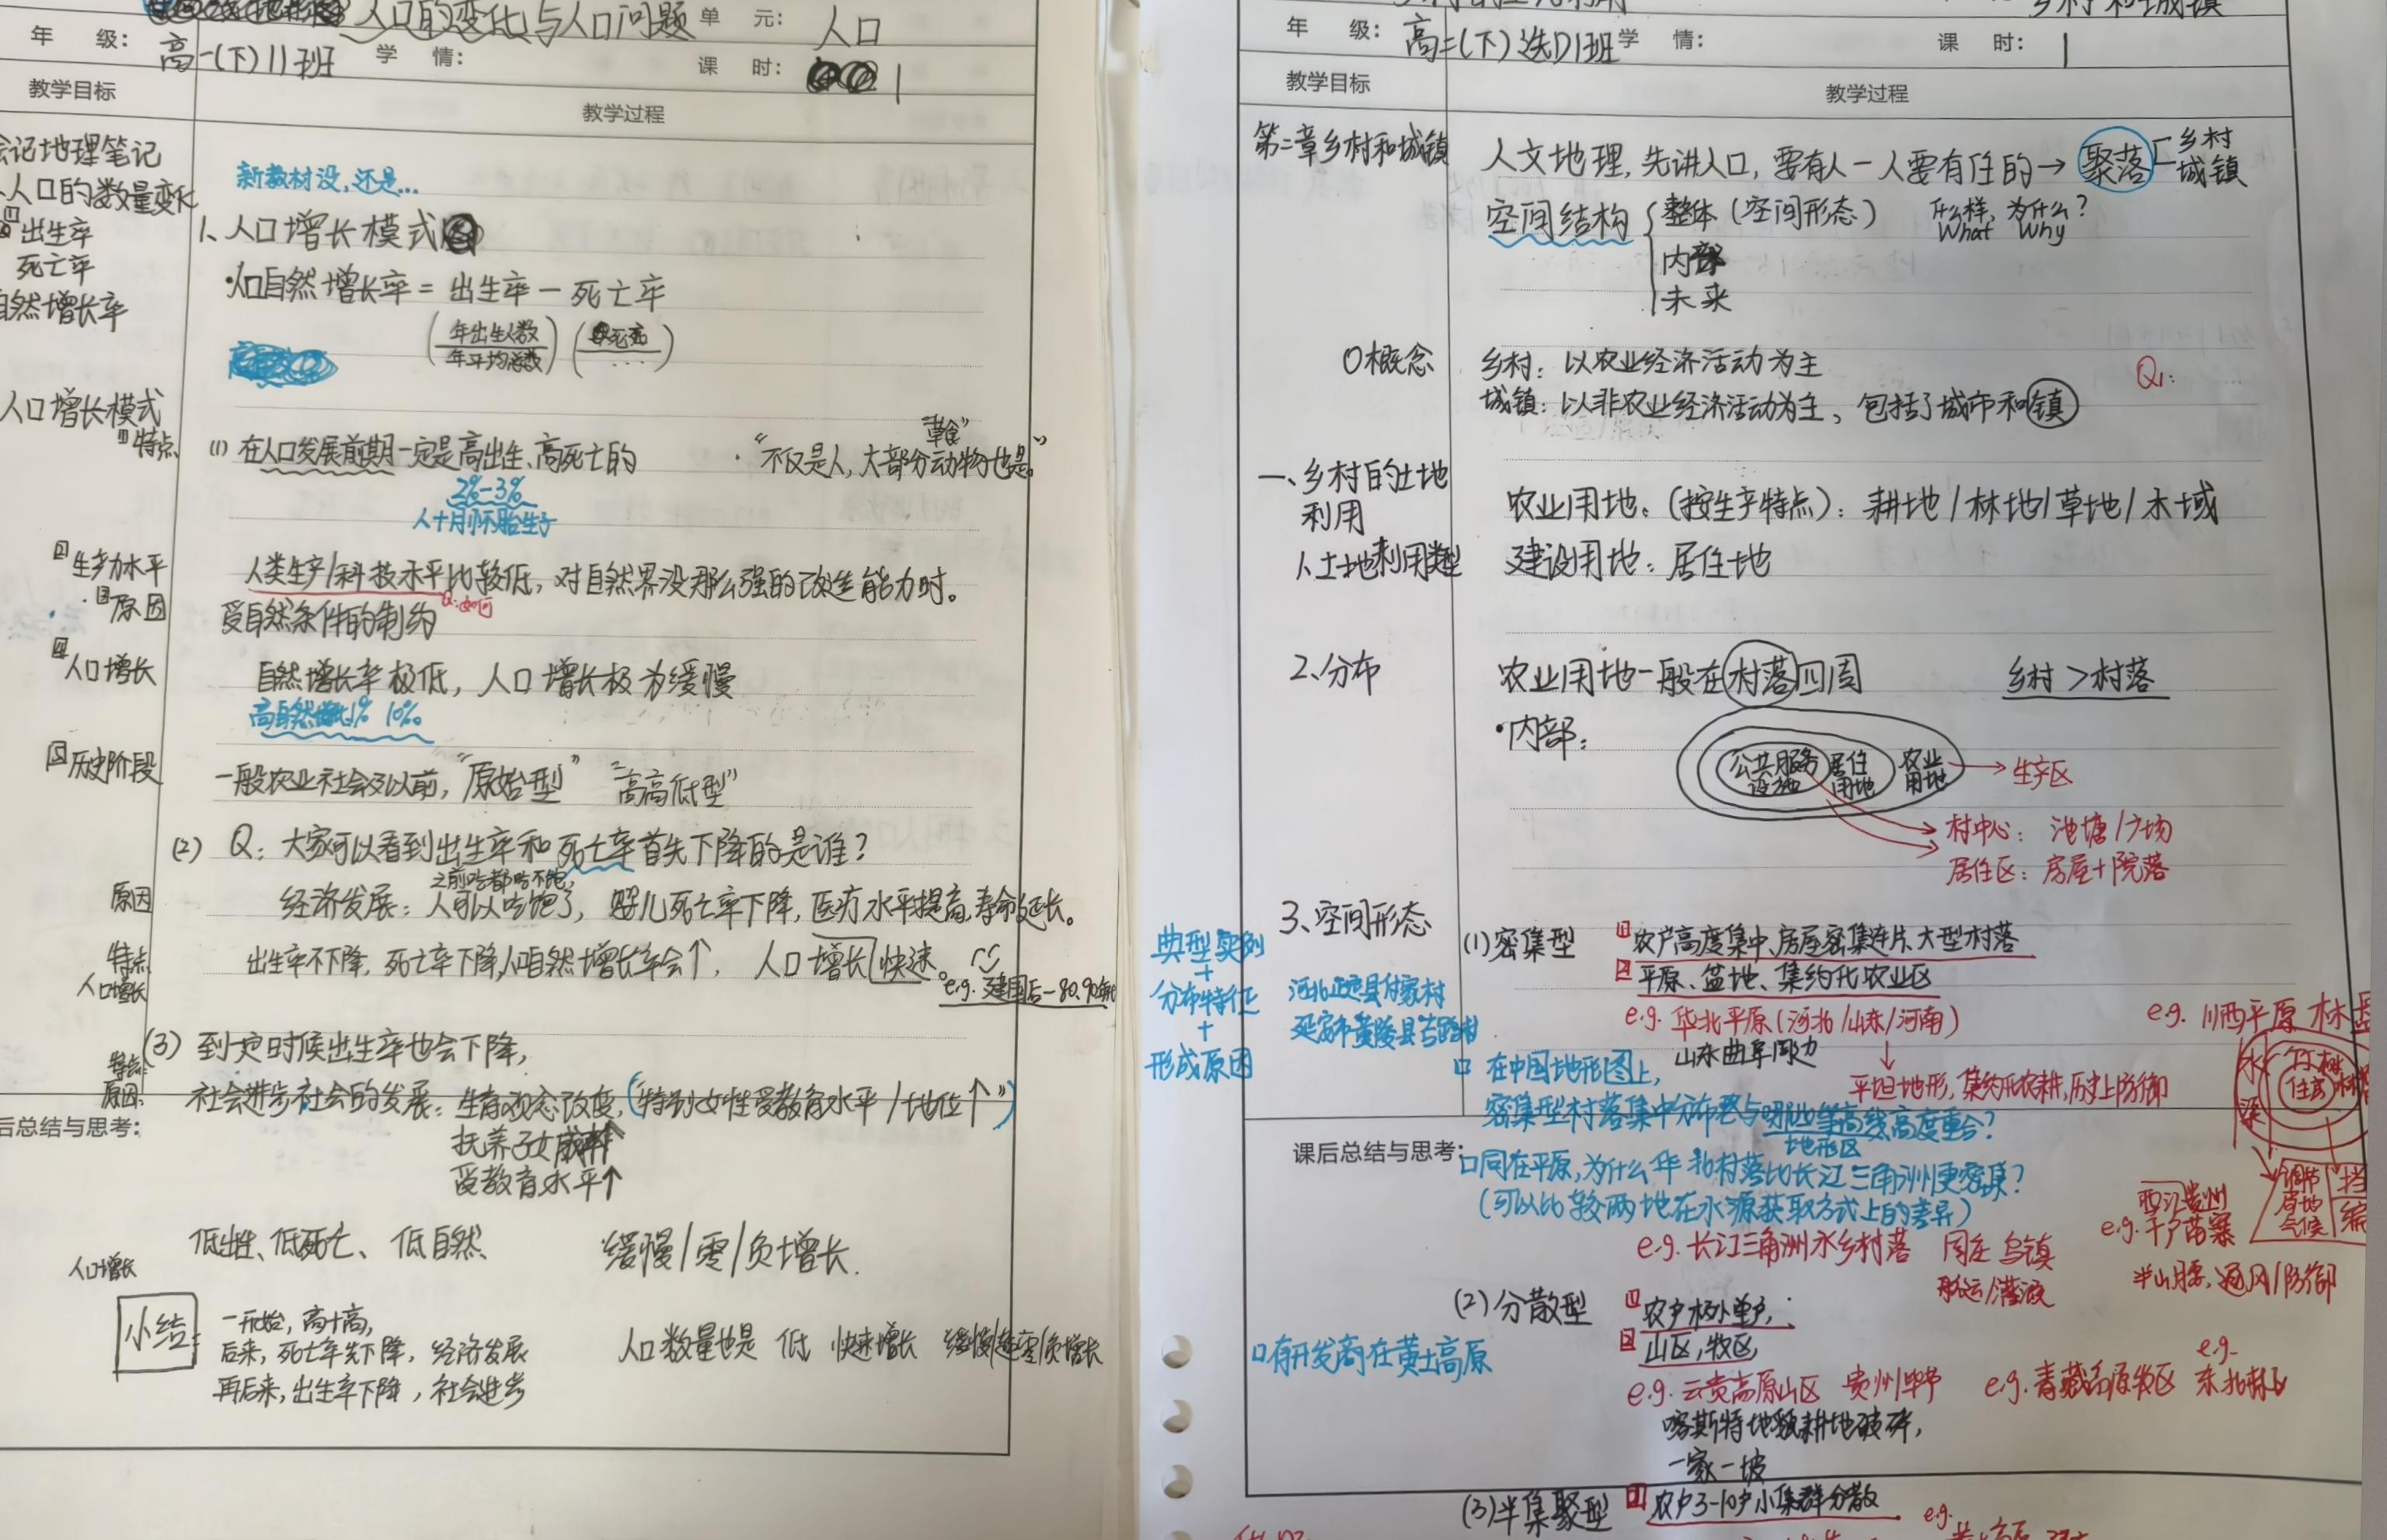 人口的变化与人口问题 单 元： 人口
年 级： 高一(下)11班 学 情： 课 时： 1
教学目标 教学过程
会记地理笔记
人口的数量变化
出生率
死亡率
自然增长率
新教材没,还是...
1、人口增长模式
·人口自然增长率 = 出生率 - 死亡率
年出生人数
年平均总数
人口增长模式
特点
(1) 在人口发展前期一定是高出生、高死亡的
“草食”
·“不仅是人,大部分动物也是。”
2%-3%
人十月怀胎生子
② 生产力水平
③ 原因
人类生产/科技水平比较低,对自然界没那么强的改造能力时。
Q:如何
受自然条件的制约
④ 人口增长
自然增长率极低,人口增长极为缓慢
1% 10‰
⑤ 历史阶段
一般农业社会及以前,“原始型” “高高低型”
(2) Q:大家可以看到出生率和死亡率首先下降的是谁?
之前吃都吃不饱
原因
经济发展:人可以吃饱了,婴儿死亡率下降,医疗水平提高,寿命延长。
特点
人口增长
出生率不下降,死亡率下降,人口自然增长率会↑, 人口增长快速。
e.g. 建国后-80.90年代
(3) 到一定时候出生率也会下降,
特点:
原因:
社会进步社会的发展:生育观念改变,(“特别女性受教育水平/地位↑”)
抚养子女成本↑
受教育水平↑
后总结与思考：
低出生、低死亡、低自然、 缓慢/零/负增长.
人口增长
小结:
一开始,高十高,
后来,死亡率先下降,经济发展
再后来,出生率下降,社会进步
人口数量也是 低 快速增长 缓慢/趋零/负增长
乡村和城镇
年 级： 高二(下)选D1班 学 情： 课 时： 1
教学目标 教学过程
第二章乡村和城镇
人文地理,先讲人口,要有人-人要有住的→聚落
乡村
城镇
空间结构
整体(空间形态) 什么样,为什么?
What Why
内部
未来
0概念
乡村:以农业经济活动为主
Q1:
城镇:以非农业经济活动为主,包括了城市和镇
一、乡村的土地
利用
1、土地利用类型
农业用地:(按生产特点):耕地/林地/草地/水域
建设用地:居住地
2、分布
农业用地一般在村落四周 乡村>村落
·内部:
公共服务
设施
居住
用地
农业
用地
→生产区
村中心: 池塘/广场
居住区:房屋+院落
3、空间形态
(1)密集型
① 农户高度集中,房屋密集连片,大型村落
② 平原、盆地、集约化农业区
典型实例
+
分布特征
+
形成原因
河北正定县付家村
延安市黄陵县
e.g. 华北平原(河北/山东/河南)
山东曲阜
e.g. 川西平原 林盘
平坦地形,集约化农耕,历史上防御
□ 在中国地形图上,
密集型村落集中分布区与哪些等高线高度重合?
地形区
课后总结与思考：
□同在平原,为什么华北村落比长江三角洲更密集?
(可以比较两地在水源获取方式上的差异)
水
溪
住宅
调节
局地
气候
e.g. 长江三角洲水乡村落 周庄 乌镇
航运/灌溉
西江贵州
e.g. 千户苗寨
半山腰,通风/防御
(2)分散型
② 山区,牧区
□有开发商在黄土高原
e.g. 云贵高原山区 贵州毕节
e.g. 青藏高原牧区
e.g.
东北林区
喀斯特地貌耕地破碎,
一家一坡
(3)半集聚型
① 农户3-10户小集群分散
e.g.